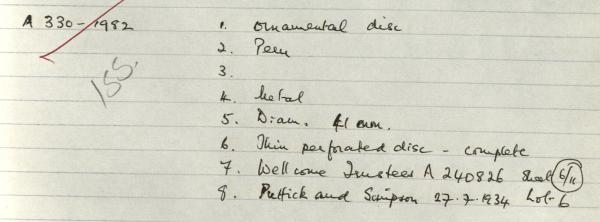 A 330-1982
1. Ornamental disc
2. Peru
3.
155.
4. Metal
5. Diam. 41 mm.
6. Thin perforated disc - complete
7. Wellcome Trustees A 240826 Shoal 6/11
8. Puttick and Simpson 27.7.1934 Lot 6